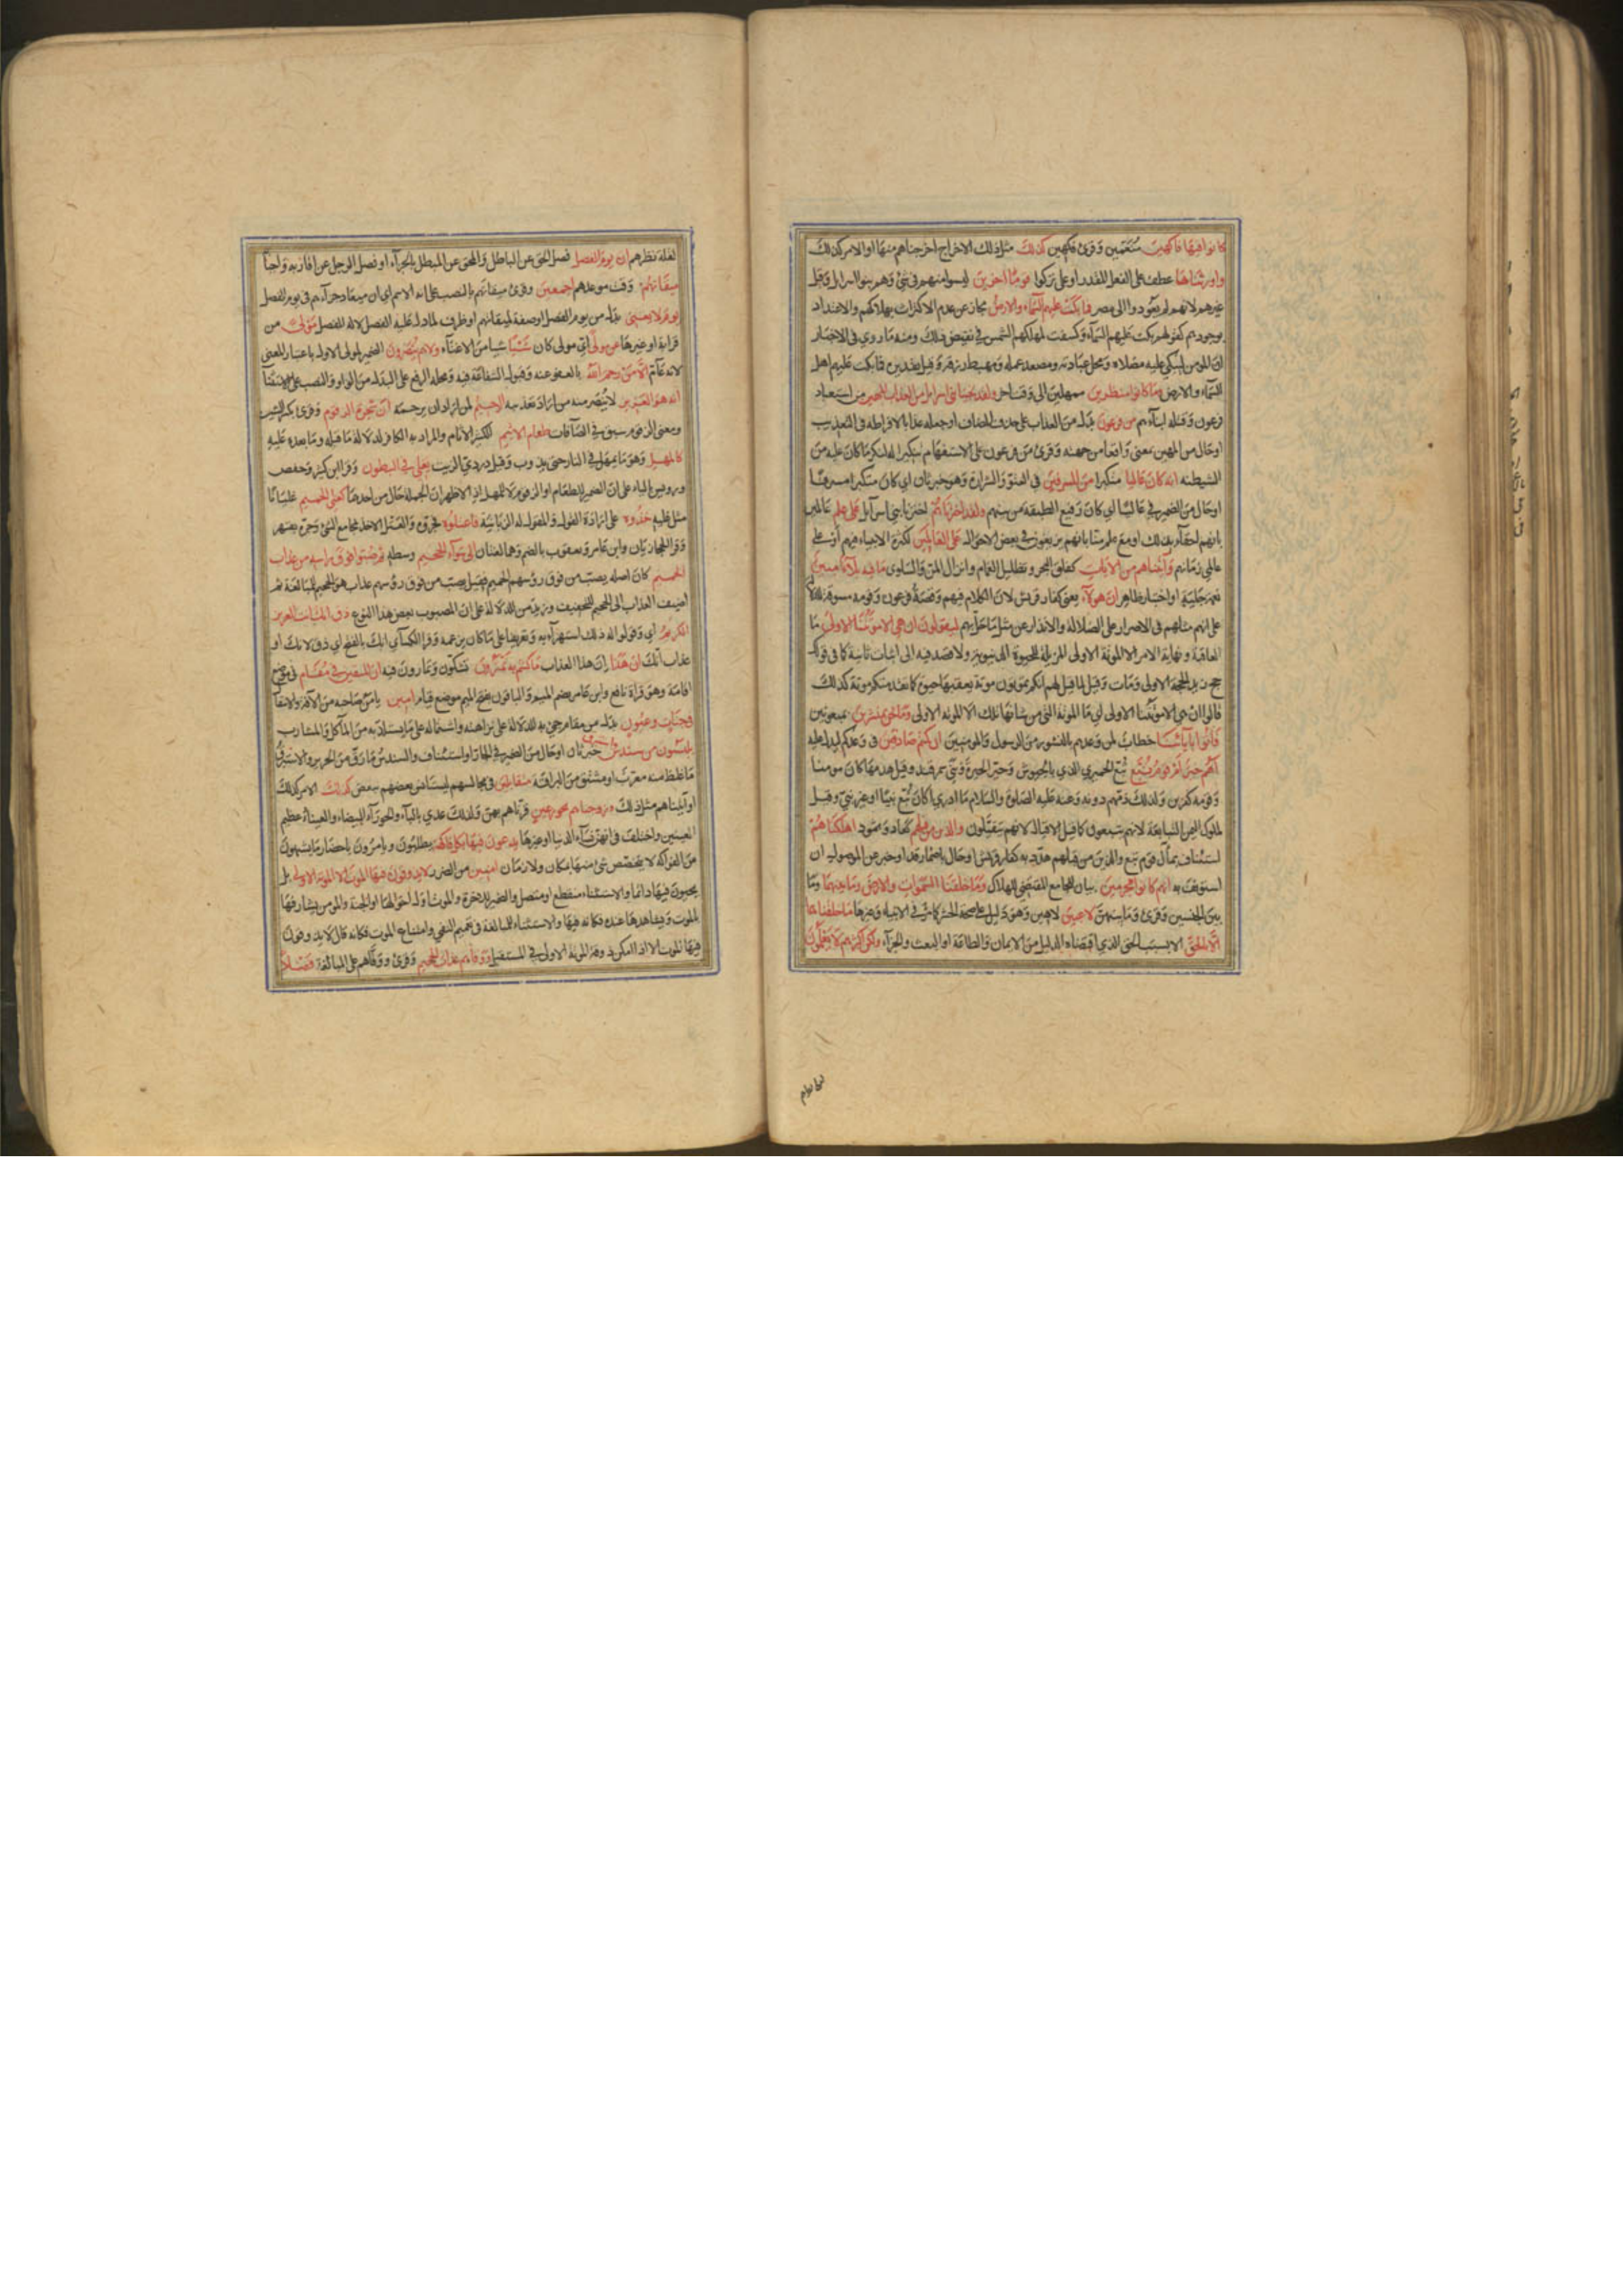 كانوا فيها فاكهين متنعمين وقرئ فكهين كذلك مثل ذلك الاخراج اخرجناهم منها او الامر كذلك
واورثناها عطف على الفعل المقدر او على تركوا قوما اخرين ليسوا منهم في شئ وهم بنو اسرايل وقيل
غيرهم لانهم لم يعودوا الى مصر فما بكت عليهم السماء والارض مجاز عن عدم الاكتراث بهلاكهم والاعتداد
بوجودهم كقولهم بكت عليهم السماء وكسفت لمهلكهم الشمس في نقيض ذلك ومنه ما روي في الاخبار
ان المؤمن ليبكي عليه مصلاه ومحل عبادته ومصعد عمله ومهبط رزقه وقيل تقديره فما بكت عليهم اهل
السماء والارض وما كانوا منظرين ممهلين الى وقت اخر ولقد نجينا بني اسرايل من العذاب المهين من استعباد
فرعون وقتله ابناءهم من فرعون بدل من العذاب على حذف المضاف او جعله عذابا لافراطه في التعذيب
او حال من المهين بمعنى واقعا من جهته وقرئ من فرعون على الاستفهام تنكيرا له لنكر ما كان عليه من
الشيطنه انه كان عاليا متكبرا من المسرفين في العتو والشرارة وهو خبر ثان اي كان متكبرا مسرفا
او حال من الضمير في عاليا اي كان رفيع الطبقة من بينهم ولقد اخترناهم اخترنا بني اسرآيل على علم عالمين
بانهم احقاء بذلك او مع علم منا بانهم يزيغون في بعض الاحوال على العالمين لكثرة الانبياء فيهم او على
عالمي زمانهم واتيناهم من الايات كفلق البحر وتظليل الغمام وانزال المن والسلوى ما فيه بلاء مبين
نعمة جلية او اختبار ظاهر ان هولاء يعني كفار قريش لان الكلام فيهم وقصة فرعون وقومه مسوقة للدلالة
على انهم مثلهم في الاصرار على الضلالة والانذار عن مثل ما حل بهم ليقولون ان هي الا موتتنا الاولى ما
العاقبة ونهاية الامر الا الموتة الاولى المزيلة للحيوة الدنيوية ولا قصد فيه الى اثبات ثانية كما في قولك
حج زيد الحجة الاولى ومات وقيل لما قيل لهم انكم تموتون موتة يعقبها حيوة كما تقدمتكم موتة كذلك
قالوا ان هي الا موتتنا الاولى اي ما الموتة التي من شانها ذلك الا الموتة الاولى وما نحن بمنشرين بمبعوثين
فأتوا بابائنا خطاب لمن وعدهم بالنشور من الرسول والمومنين ان كنتم صادقين في وعدكم ليدل عليه
اهم خير ام قوم تبع تبع الحميري الذي سار بالجيوش وحير الحيرة وبنى سمرقند وقيل هدمها كان مومنا
وقومه كافرين ولذلك ذمهم دونه وعنه عليه الصلوة والسلام ما ادري أكان تبع نبيا او غير نبي وقيل
لملوك اليمن التبابعة لانهم يتبعون كما قيل الاقيال لانهم يتقيلون والذين من قبلهم كعاد وثمود اهلكناهم
استيناف بمآل قوم تبع والذين من قبلهم هدد به كفار قريش او حال باضمار قد او خبر عن الموصول ان
استؤنف به انهم كانوا مجرمين بيان للجامع المقتضي للهلاك وما خلقنا السموات والارض وما بينهما وما
بين الجنسين وقرئ وما بينهن لاعبين لاهين وهو دليل على صحة الحشر كما مر في الانبياء وغيرها ما خلقناهما
الا بالحق الا بسبب الحق الذي اقتضاه الدليل من الايمان والطاعة او البعث والجزآء ولكن اكثرهم لا يعلمون
لقلة نظرهم ان يوم الفصل فصل الحق عن الباطل والمحق عن المبطل بالجزآء او فصل الرجل عن اقاربه واحبآ
ميقاتهم وقت موعدهم اجمعين وقرئ ميقاتهم بالنصب على انه الاسم اي ان ميعاد جزآءهم في يوم الفصل
يوم لا يغني بدل من يوم الفصل او صفة لميقاتهم او ظرف لما دل عليه الفصل لا له للفصل مولى من
قرابة او غيرها عن مولى اي مولى كان شيئا شيا من الاغنآء ولا هم ينصرون الضمير لمولى الاول باعتبار المعنى
لانه عام الا من رحم الله بالعفو عنه وقبول الشفاعة فيه ومحله الرفع على البدل من الواو والنصب على الاستثنا
انه هو العزيز لا ينصر منه من اراد تعذيبه الرحيم لمن اراد ان يرحمه ان شجرة الزقوم وقرئ بكسر الشين
ومعنى الزقوم سبق في الصآفات طعام الاثيم الكثير الاثام والمراد به الكافر لدلالة ما قبله وما بعده عليه
كالمهل وهو ما يمهل في النار حتى يذوب وقيل دردي الزيت يغلي في البطون وقرا ابن كثير وحفص
ورويس بالياء على ان الضمير للطعام او الزقوم لا للمهل اذ الاظهر ان الجملة حال من احدهما كغلي الحميم غليانا
مثل غليه خذوه على ارادة القول والمقول له الزبانية فاعتلوه فجروه والعتل الاخذ بمجامع الشئ وجره بعنف
وقرا الحجازيان وابن عامر ويعقوب بالضم وهما لغتان الى سوآء الجحيم وسطه ثم صبوا فوق راسه من عذاب
الحميم كان اصله يصب من فوق رؤسهم الحميم فقيل يصب من فوق رؤسهم عذاب هو الحميم للمبالغة ثم
اضيف العذاب الى الحميم للتخفيف وزيد من للدلالة على ان المصبوب بعض هذا النوع ذق انك انت العزيز
الكريم اي وقولوا له ذلك استهزآء به وتقريعا على ما كان يزعمه وقرا الكسآي انك بالفتح اي ذق لانك او
عذاب انك ان هذا ان هذا العذاب ما كنتم به تمترون تشكون وتمارون فيه ان المتقين في مقام في موضع
اقامة وهو قراة نافع وابن عامر بضم الميم والباقون بفتح الميم موضع قيام امين يامن صاحبه من الآفة والانتقا
في جنات وعيون بدل من مقام جئ به للدلالة على نزاهته واشتماله على ما يستلذ به من المآكل والمشارب
يلبسون من سندس خبر ثان او حال من الضمير في الجار او استيناف والسندس ما رق من الحرير والاستبرق
ما غلظ منه معرب او مشتق من البراقة متقابلين في مجالسهم ليستانس بعضهم ببعض كذلك الامر كذلك
او آتيناهم مثل ذلك وزوجناهم بحور عين قرناهم بهن ولذلك عدي بالبآء والحورآء البيضاء والعيناء عظيم
العينين واختلف في انهن نسآء الدنيا او غيرها يدعون فيها بكل فاكهة يطلبون ويامرون باحضار ما يشتهون
من الفواكه لا يتخصص شئ منها بمكان ولا زمان امنين من الضرر لا يذوقون فيها الموت الا الموتة الاولى بل
يحيون فيها دائما والاستثناء منقطع او متصل والضمير للاخرة والموت اول احوالها او الجنة والمومن يشارفها
بالموت ويشاهدها عنده فكانه فيها والاستثناء للمبالغة في تعميم النفي وامتناع الموت فكانه قال لا يذوقون
فيها الموت الا اذا امكن ذوق الموتة الاولى في المستقبل ووقاهم عذاب الجحيم وقرئ ووقاهم على المبالغة فضلا